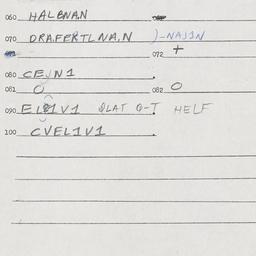 060 HALBNAN
070 DRA.FERTLNA.N )-NAJ1N
072 +
080 CEJN1
081 O 082 O
090 EL V1 QLAT O-T HELF
100 CVEL1V1